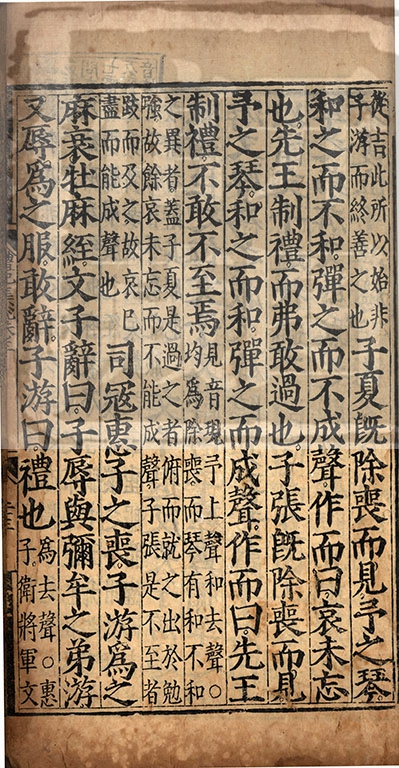 從吉此所以始非
子游而終善之也
子夏既除喪而見予之琴。
和之而不和。彈之而不成聲。作而曰。哀未忘
也。先王制禮而弗敢過也。子張既除喪而見。
予之琴。和之而和。彈之而成聲。作而曰。先王
制禮。不敢不至焉。
見音現予上聲和去聲○
均為除喪而琴有和不和
之異者蓋子夏是過之者俯而就之出於勉
強故餘哀未忘而不能成聲子張是不至者
跂而及之故哀已
盡而能成聲也
司寇惠子之喪。子游為之
麻衰牡麻絰。文子辭曰。子辱與彌牟之弟游。
又辱為之服。敢辭。子游曰。禮也
為去聲○惠
子衛將軍文